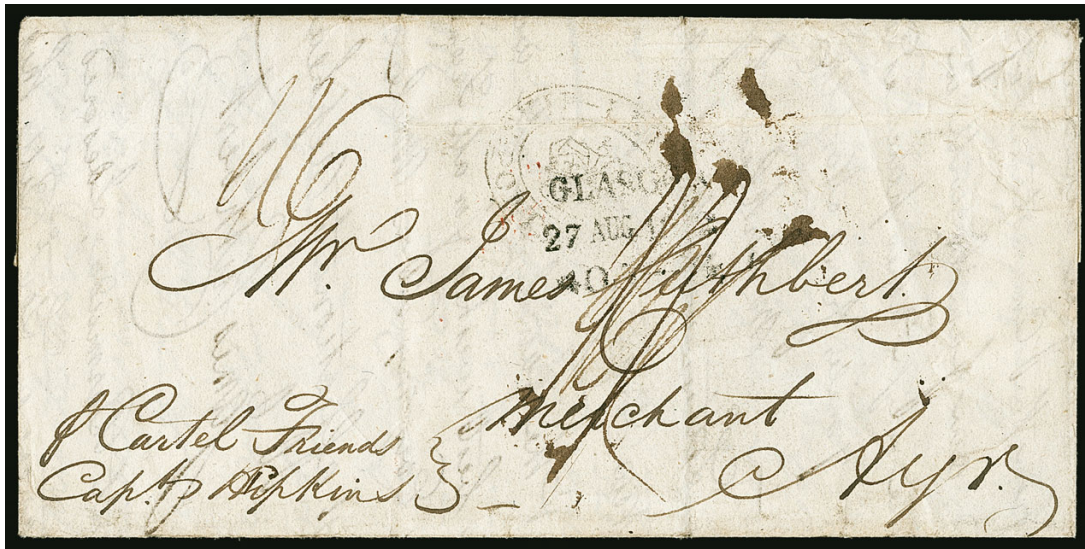 1/6
GLASGOW
27 AUG
Mr. James Cuthbert.
Merchant
Ayr.
p Cartel Friends
Capt. Hopkins